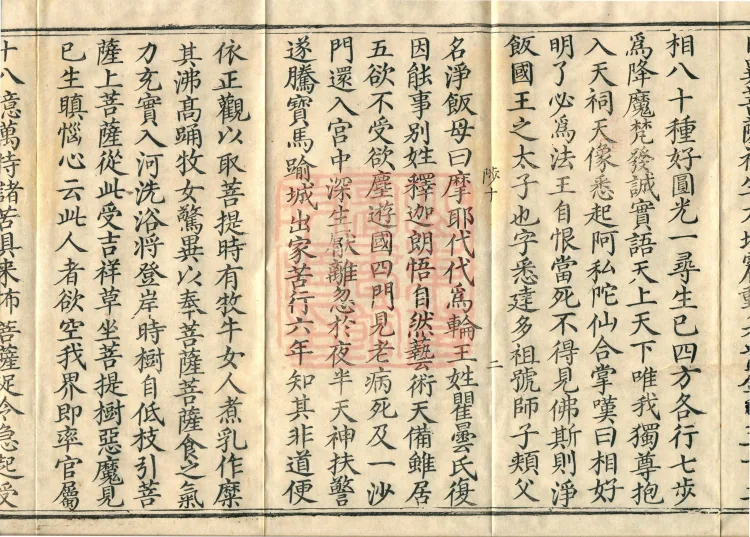 相八十種好圓光一尋生已四方各行七步
爲降魔梵發誠實語天上天下唯我獨尊抱
入天祠天像悉起阿私陀仙合掌嘆曰相好
明了必爲法王自恨當死不得見佛斯則淨
飯國王之太子也字悉達多祖號師子頰父
十 二
名淨飯母曰摩耶代代爲輪王姓瞿曇氏復
因能事別姓釋迦朗悟自然藝術天備雖居
五欲不受欲塵遊國四門見老病死及一沙
門還入宮中深生厭離忽於夜半天神扶警
遂騰寶馬踰城出家苦行六年知其非道便
依正觀以取菩提時有牧牛女人煮乳作糜
其沸髙踊牧女驚異以奉菩薩菩薩食之氣
力充實入河洗浴將登岸時樹自低枝引菩
薩上菩薩從此受吉祥草坐菩提樹惡魔見
已生瞋惱心云此人者欲空我界即率官屬
十八億萬持諸苦具來怖菩薩促令急起受